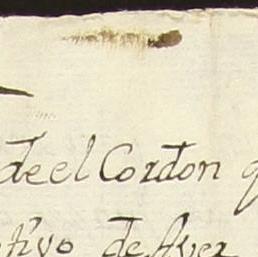 de el Cordon q
de Aver